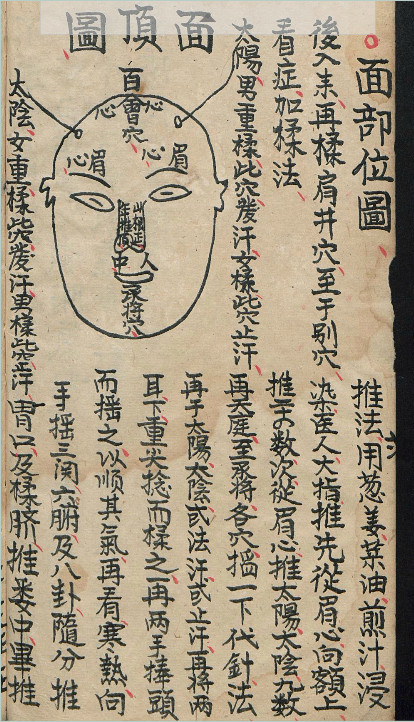 面部位圖
推法用葱姜菜油煎汁浸
後入耒再揉肩井穴至于别穴
染医人大指推先從眉心向額上
看症加揉法
数次從眉心推太陽太陰九数
太陽男重揉此穴發汗女揉此穴止汗
再天庭至承将各穴掐一下代針法
面頂圖
百會穴
心
心
眉心
眉心
人中
承将穴
再于太陽太陰或法汗或止汗再将两
耳下重尖捻而揉之再两手捧頭
而摇之以順其氣再看寒熱向
手摇三関六腑及八卦隨分推
太陰女重揉此發汗男揉此穴止汗
胃口及揉臍推委中畢推